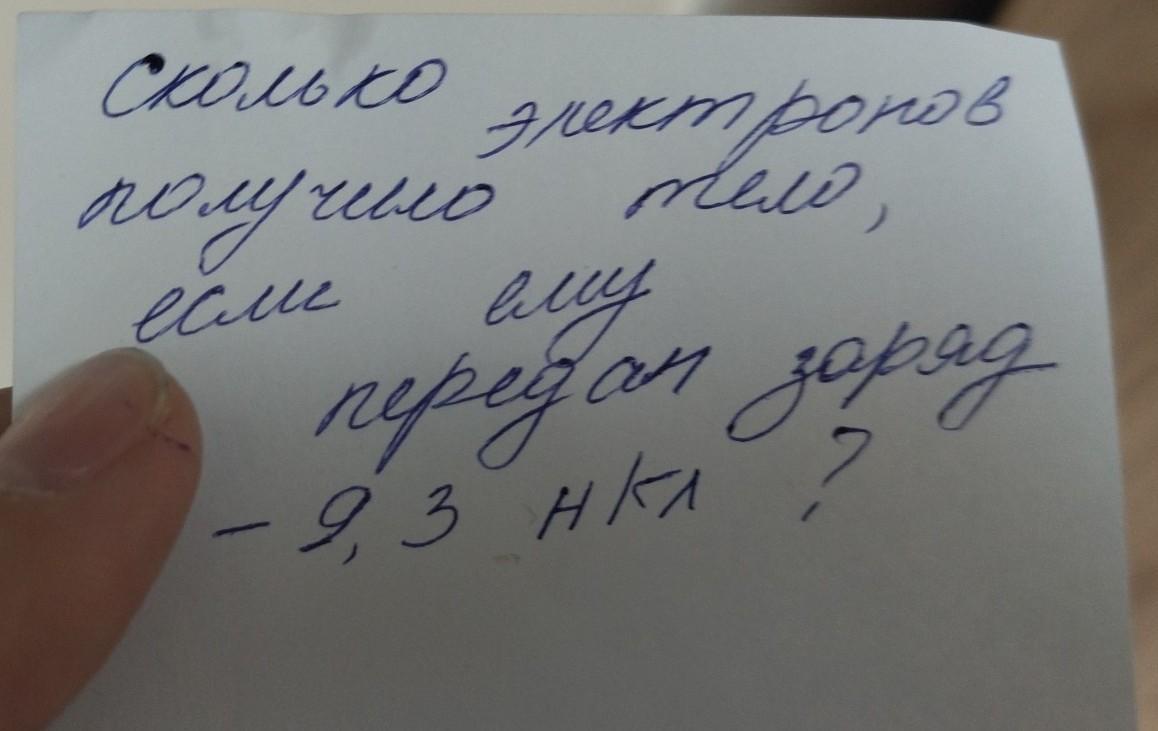 Сколько электронов
получило тело,
если ему
передан заряд
- 9,3 нКл ?